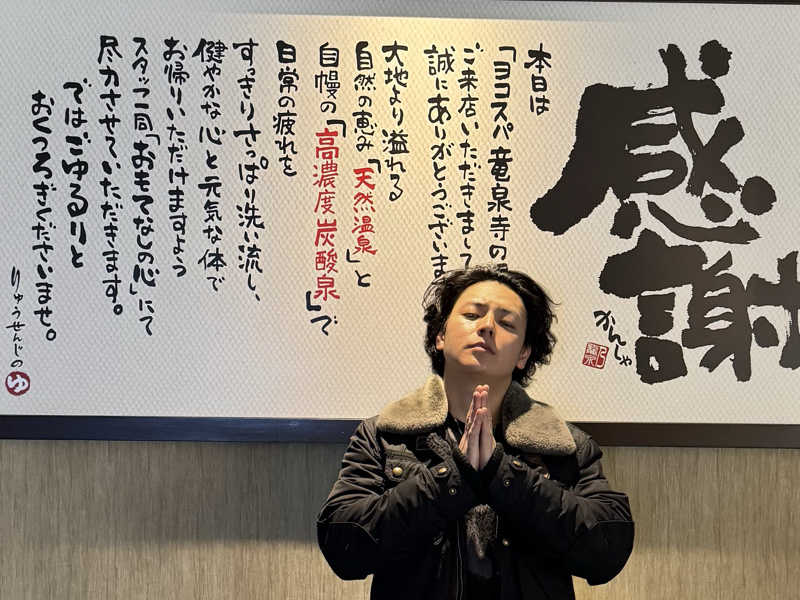 感謝
かんしゃ
本日は
「ヨコスパ竜泉寺の
ご来店いただきまして
誠にありがとうございます
大地より溢れる
自然の恵み「天然温泉」と
自慢の「高濃度炭酸泉」で
日常の疲れを
すっきりさっぱり洗い流し、
健やかな心と元気な体で
お帰りいただけますよう
スタッフ一同「おもてなしの心」にて
尽力させていただきます。
ではごゆるりと
おくつろぎくださいませ。
りゅうせんじの
ゆ